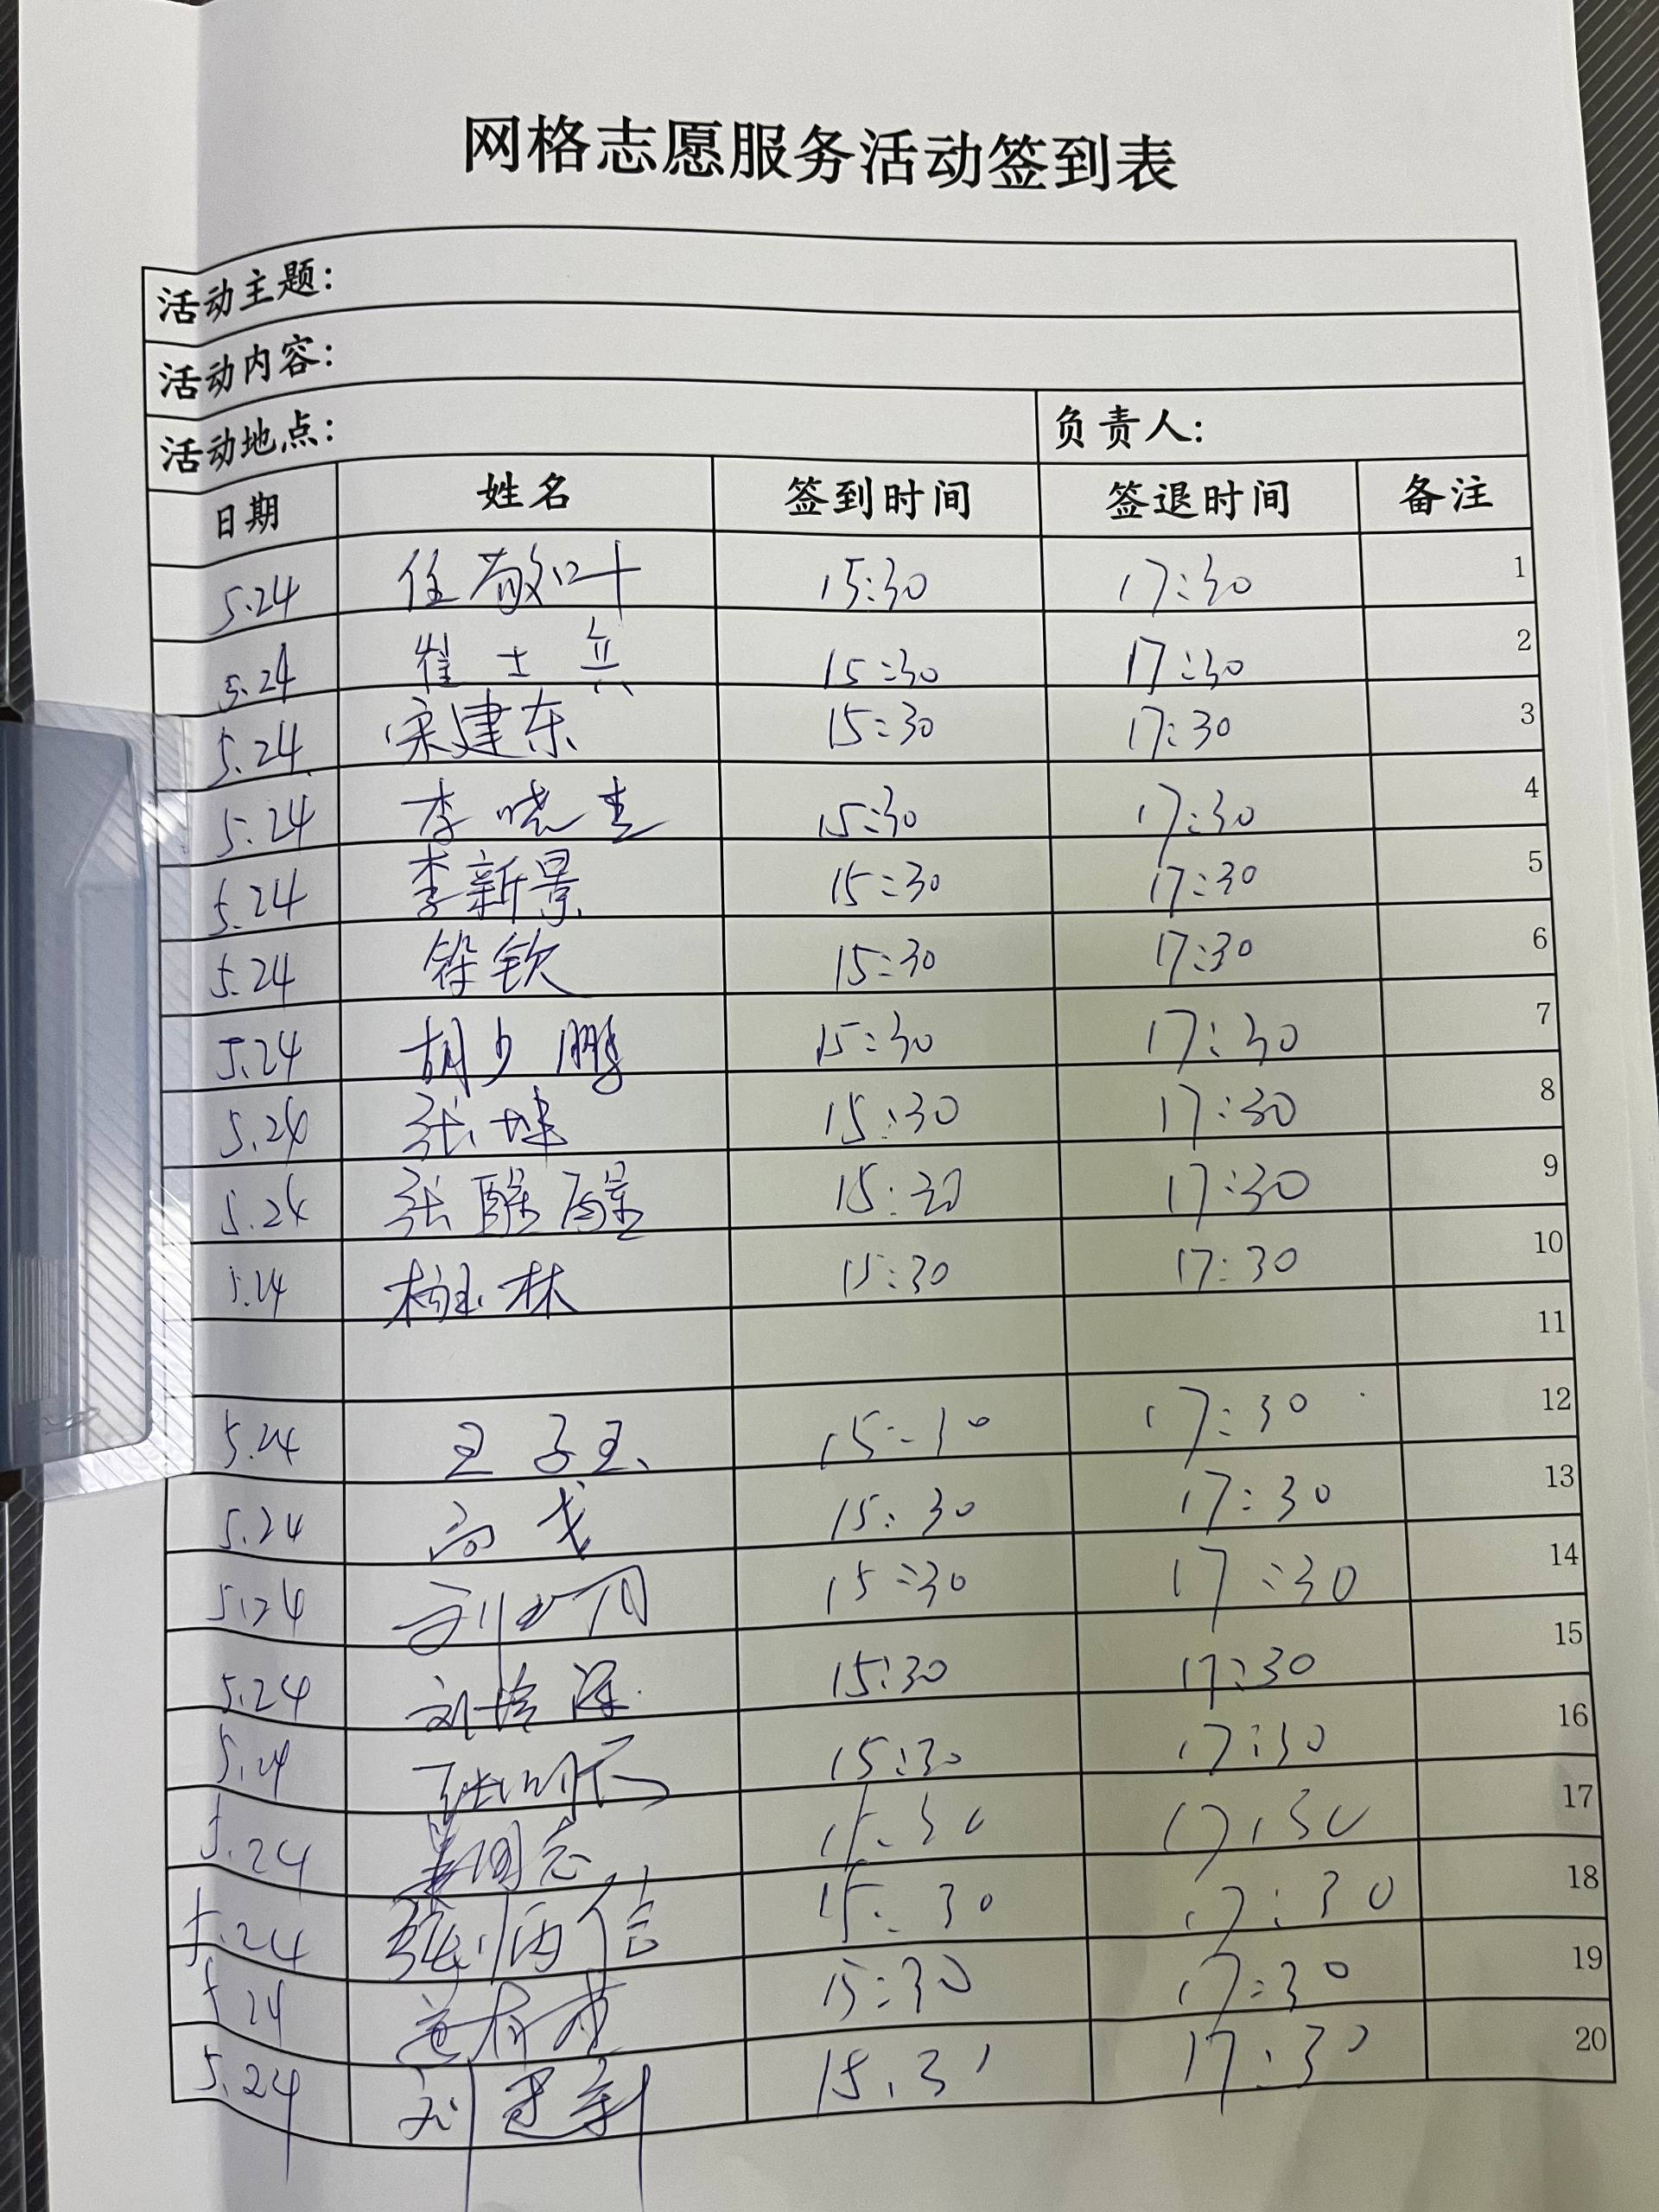 网格志愿服务活动签到表
活动主题：
活动内容：
活动地点： 负责人：
日期 姓名 签到时间 签退时间 备注
5.24 任敬叶 15:30 17:30 1
5.24 崔士兵 15:30 17:30 2
5.24 宋建东 15:30 17:30 3
5.24 李晓 15:30 17:30 4
5.24 李新景 15:30 17:30 5
5.24 钦 15:30 17:30 6
5.24 胡少鹏 15:30 17:30 7
5.24 张坤 15:30 17:30 8
5.24 张 15:30 17:30 9
5.24 林 15:30 17:30 10
11
5.24 王子玉 15:30 17:30 12
5.24 高 15:30 17:30 13
5.24 刘 15:30 17:30 14
5.24 刘 15:30 17:30 15
5.24 张明 15:30 17:30 16
5.24 志 15:30 17:30 17
5.24 张 信 15:30 17:30 18
5.24 15:30 17:30 19
5.24 刘 新 15.3 17:30 20